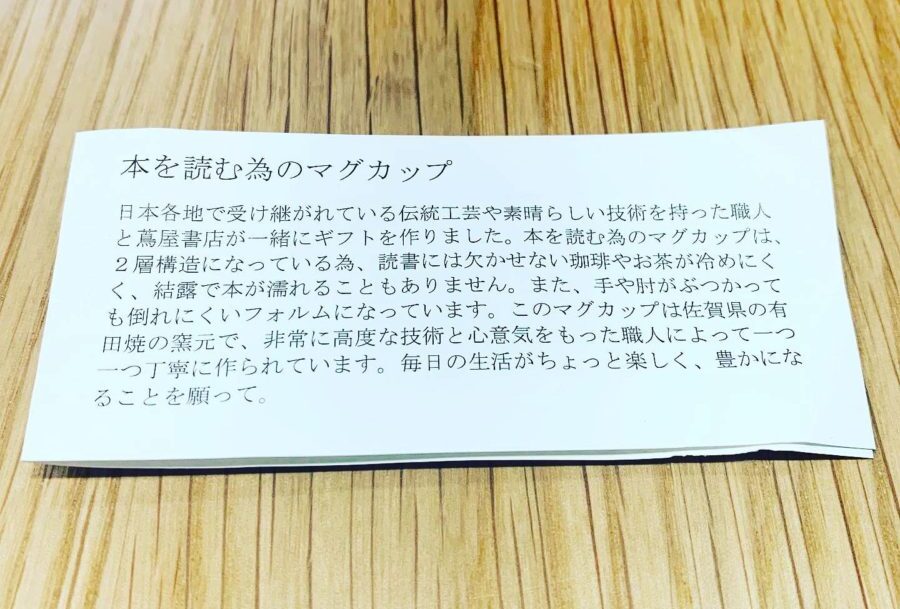 本を読む為のマグカップ
日本各地で受け継がれている伝統工芸や素晴らしい技術を持った職人
と蔦屋書店が一緒にギフトを作りました。本を読む為のマグカップは、
２層構造になっている為、読書には欠かせない珈琲やお茶が冷めにく
く、結露で本が濡れることもありません。また、手や肘がぶつかって
も倒れにくいフォルムになっています。このマグカップは佐賀県の有
田焼の窯元で、非常に高度な技術と心意気をもった職人によって一つ
一つ丁寧に作られています。毎日の生活がちょっと楽しく、豊かにな
ることを願って。